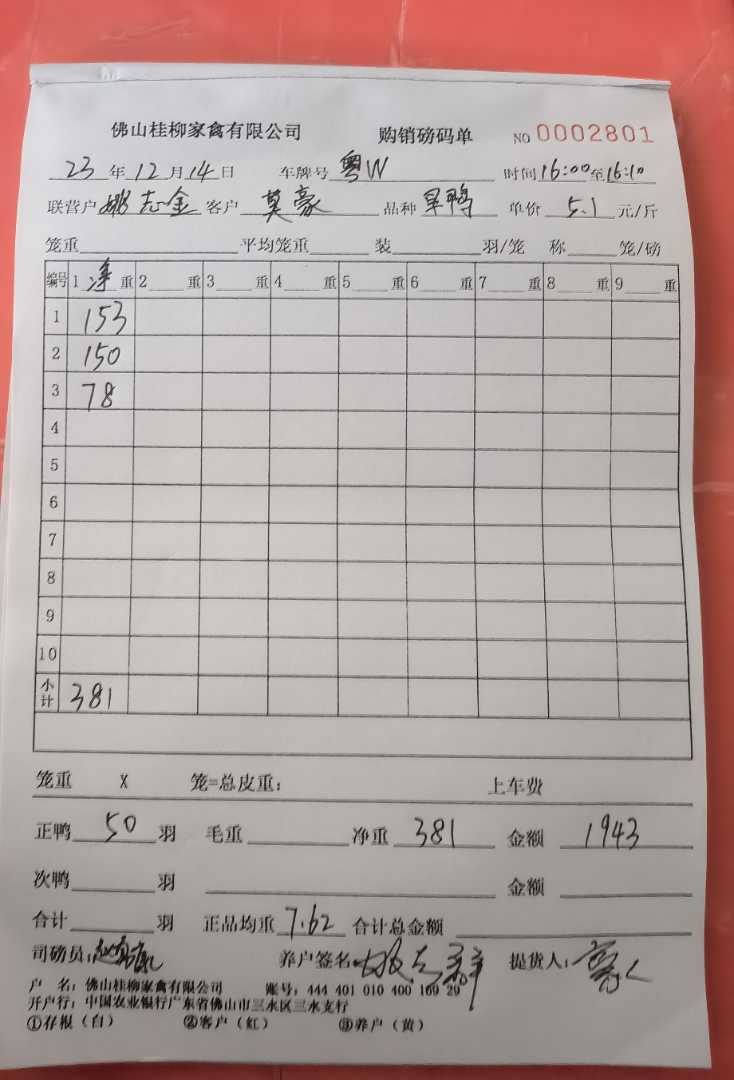 佛山桂柳家禽有限公司 购销磅码单 NO 0002801
23 年 12 月 14 日 车牌号 粤W 时间 16:00 至 16:10
联营户 志金 客户 莫豪 品种 旱鸭 单价 5.1 元/斤
笼重 平均笼重 装 羽/笼 称 笼/磅
编号 1 净 重 2 重 3 重 4 重 5 重 6 重 7 重 8 重 9 重
1 153
2 150
3 78
4
5
6
7
8
9
10
小计 381
笼重 X 笼=总皮重: 上车费
正鸭 50 羽 毛重 净重 381 金额 1943
次鸭 羽 金额
合计 羽 正品均重 7.62 合计总金额
司磅员: 养户签名 提货人:
户 名: 佛山桂柳家禽有限公司 账号: 444 401 010 400 169 29
开户行: 中国农业银行广东省佛山市三水区三水支行
①存根(白) ②客户(红) ③养户(黄)